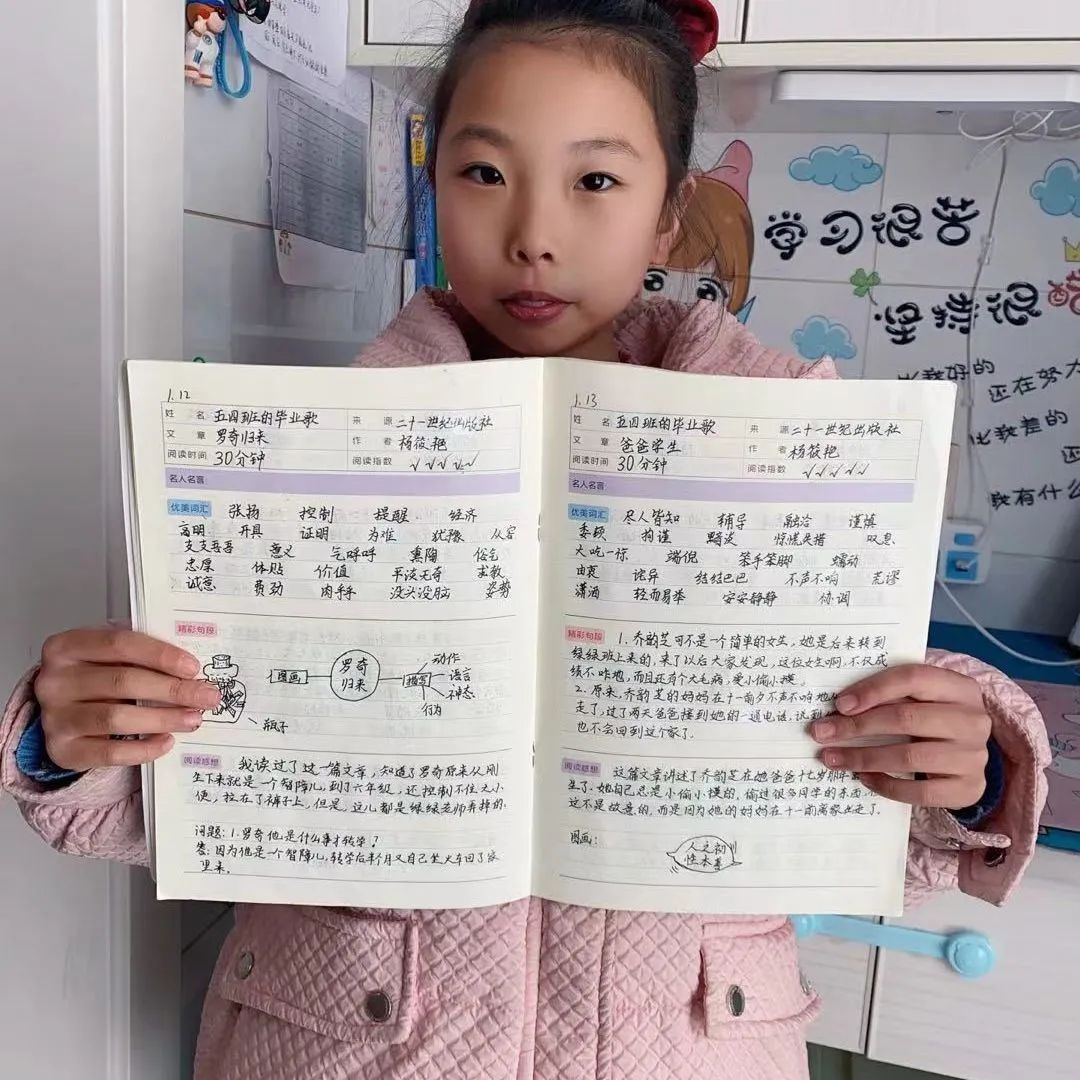 学习很苦
坚持很酷
比我好的
还在努力
比我差的
我有什么
1.12
姓 名 五四班的毕业歌 来 源 二十一世纪出版社
文 章 罗奇归来 作 者 杨筱艳
阅读时间 30分钟 阅读指数 √√√√√
名人名言
优美词汇 张扬 控制 提醒 经济
高明 开具 证明 为难 犹豫 从容
支支吾吾 意义 气呼呼 熏陶 俗气
忠厚 体贴 价值 平淡无奇 求教
诚意 费劲 肉乎乎 没头没脑 姿势
精彩句段
图画
罗奇
归来
描写
动作
语言
神态
行为
瓶子
阅读感想 我读过了这一篇文章，知道了罗奇原来从刚
生下来就是一个智障儿，到了六年级，还控制不住大小
便，拉在了裤子上，但是，这儿都是绿绿老师弄掉的.
问题：1.罗奇他是什么事才转学？
答：因为他是一个智障儿，转学后半个月又自己坐火车回了家
里来.
1.13
姓 名 五四班的毕业歌 来 源 二十一世纪出版社
文 章 爸爸学生 作 者 杨筱艳
阅读时间 30分钟 阅读指数 √√√√√
名人名言
优美词汇 尽人皆知 辅导 融洽 谨慎
委顿 拘谨 黯淡 惊慌失措 叹息
大吃一惊 端倪 笨手笨脚 蠕动
由衷 诧异 结结巴巴 不声不响 荒谬
潇洒 轻而易举 安安静静 协调
精彩句段 1.乔韵芝可不是一个简单的女生，她是后来转到
绿绿班上来的，来了以后大家发现，这位女生啊，不仅成
绩不咋地，而且还有个大毛病，爱小偷小摸.
2.原来，乔韵芝的妈妈在十一前夕不声不响地
走了，过了两天爸爸接到她的一通电话，说到
也不会回到这个家了.
阅读感想 这篇文章讲述了乔韵芝在她爸爸十七岁那年
生了.她自己总是小偷小摸的，偷过很多同学的东西，
这不是故意的，而是因为她的妈妈在十一前离家出走了.
图画：
人之初
性本善